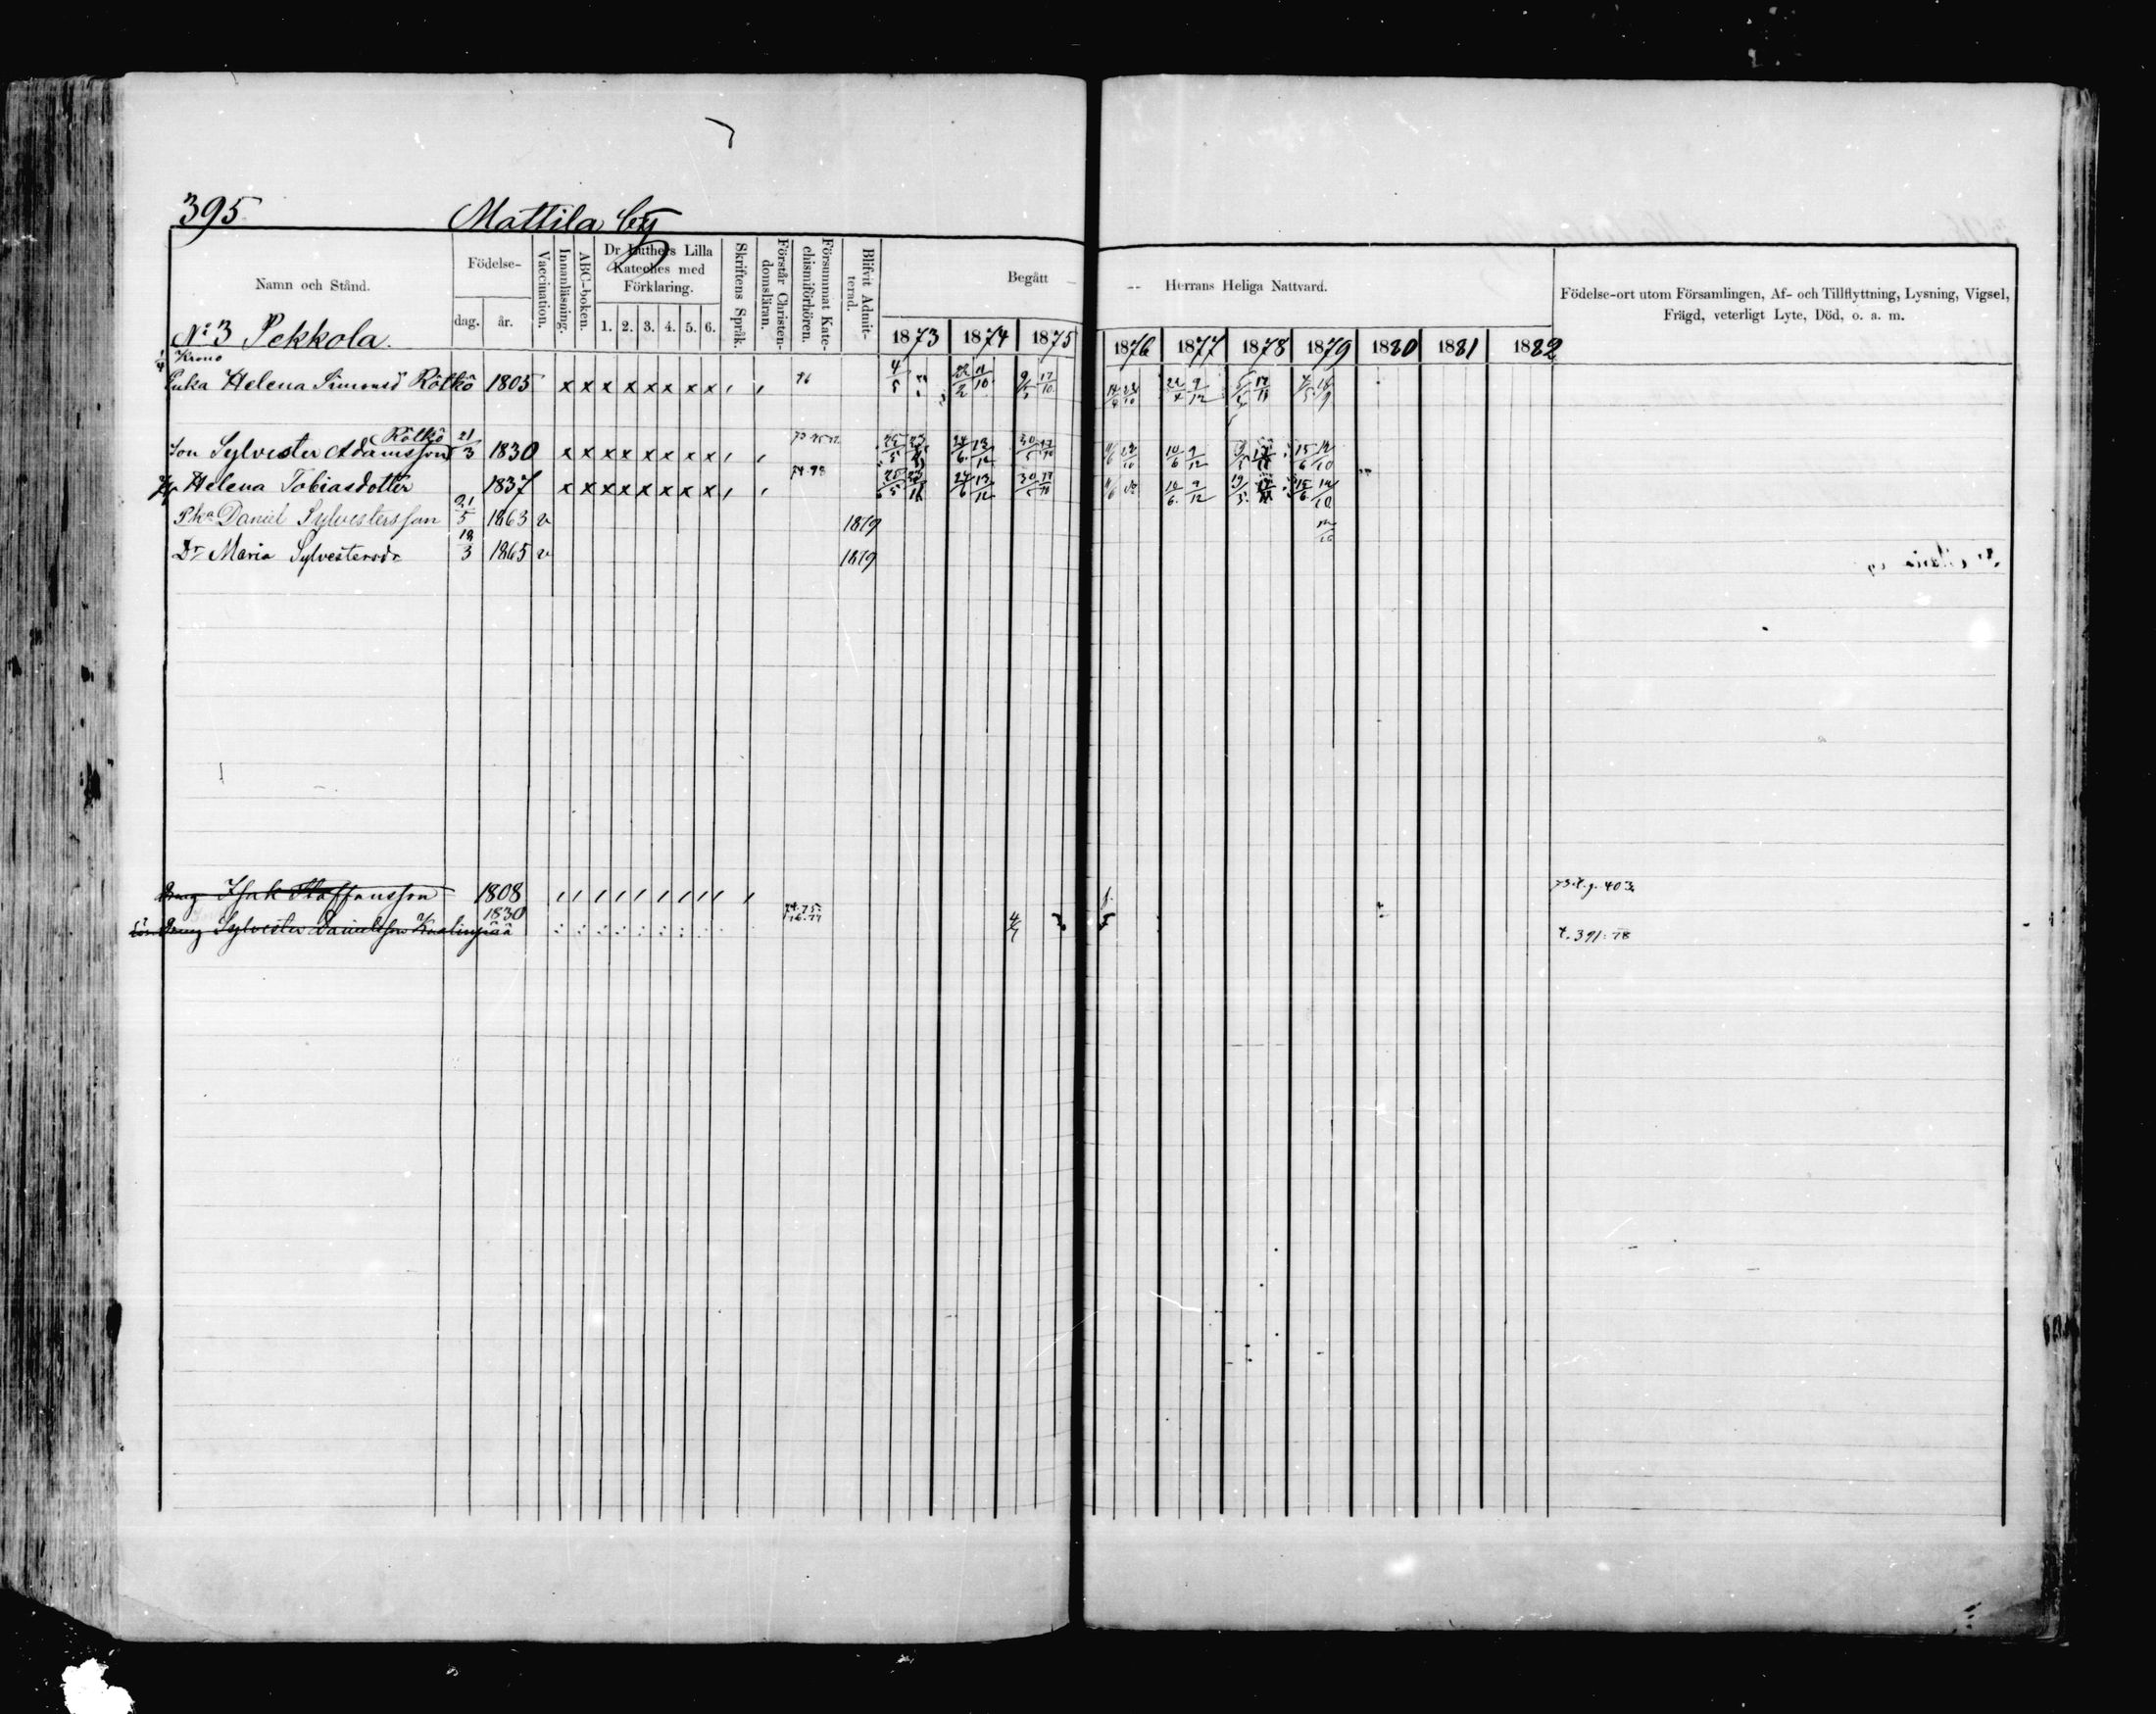 395 Mattila by
Namn och Stånd.
Födelse-
dag. år.
Vaccination.
Innanläsning.
ABC-boken.
Dr Luthers Lilla
Kateches med
Förklaring.
1. 2. 3. 4. 5. 6.
Skriftens Språk.
Förstår Christen-
domsläran.
Försummat Kate-
chismiförhören.
Blifvit Admit-
terad.
Begått
Herrans Heliga Nattvard.
1873 1874 1875
1876 1877 1878 1879 1880 1881 1882
Födelse-ort utom Församlingen, Af- och Tillflyttning, Lysning, Vigsel,
Frägd, veterligt Lyte, Död, o. a. m.
No 3 Pekkola.
1/4 Krono
Enka Helena Simonsd Rötkö 1805 x x x x x x x x 76 4/5 22/2 11/10 9/5 17/10
Rötkö
Son Sylvester Adamsson 21/3 1830 x x x x x x x x 25/5 24/6 13/12 30/5 17/10 10/6 9/12 15/6 12/10
Helena Tobiasdotter 1837 x x x x x x x x 74.78 25/5 24/6 13/12 30/5 17/10 10/6 9/12 19/5 15/6 12/10
Daniel Sylvestersson 21/5 1863 v 1879
Dr Maria Sylvestersdr 18/3 1865 v 1879
Dreng Isak Staffansson 1808 73.t.p. 403
Dreng Sylvester Danielsson 1830 74.75. 76.77 4/7 t. 391. 78